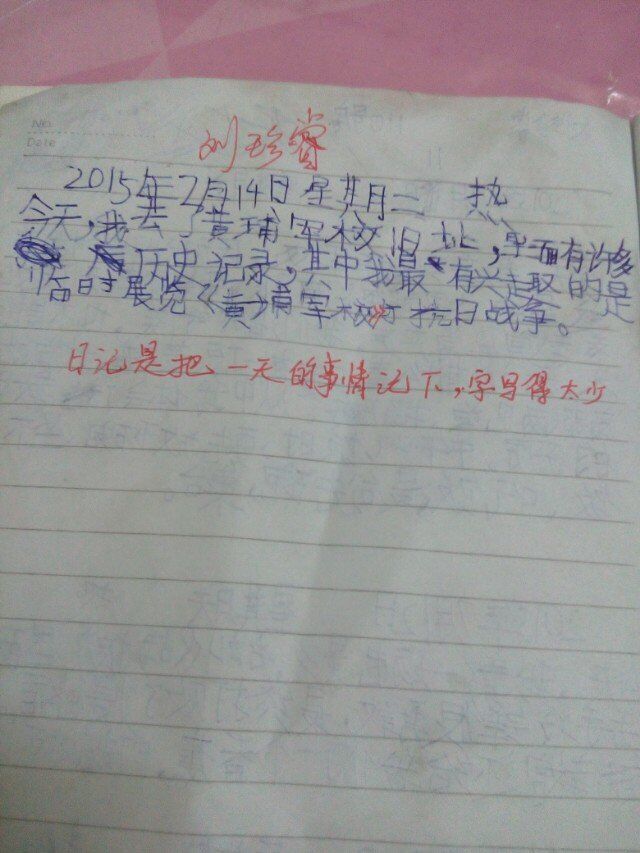 NO.
Date
刘珍赏
2015年7月14日 星期二 热
今天,我去了黄埔军校旧址,里面有许多
历史记录,其中我最有兴趣的是
临时展览《黄》埔军校 抗日战争。
日记是把一天的事情记下,字写得太少